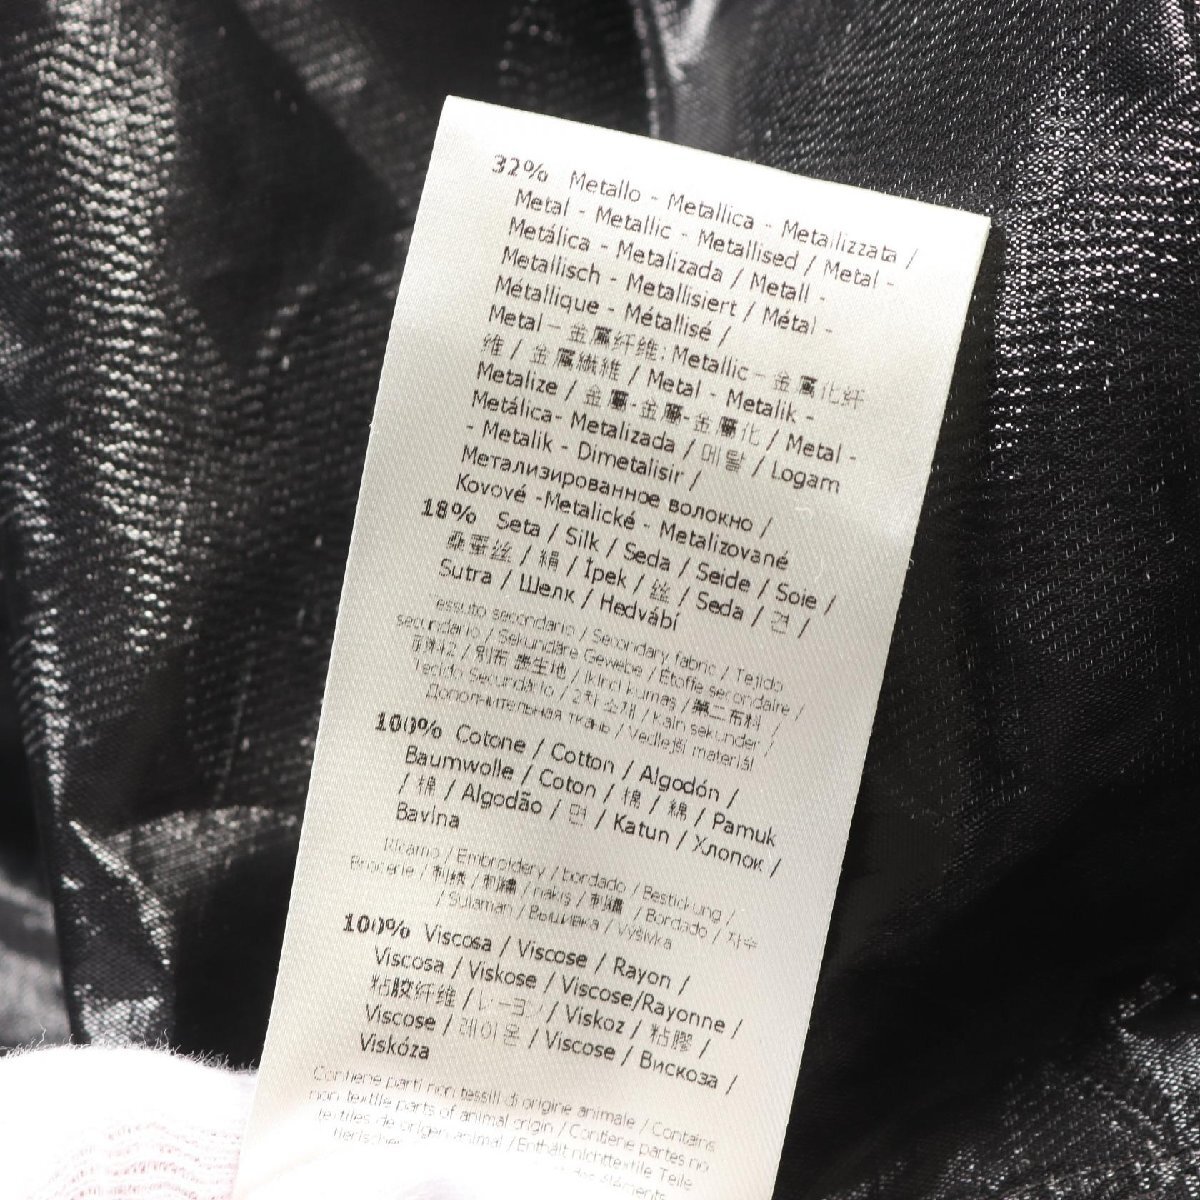 32% Metallo - Metallica - Metallizzata /
Metal - Metallic - Metallised / Metal -
Metálica - Metalizada / Metall -
Metallisch - Metallisiert / Métal -
Métallique - Métallisé /
Metal – 金属纤维; Metallic – 金属化纤
维 / 金屬纖維 / Metal - Metalik -
Metalize / 金屬-金屬-金屬化 / Metal -
Metálica- Metalizada / 메탈 / Logam
- Metalik - Dimetalisir /
Метализированное волокно /
Kovové -Metalické - Metalizované
18% Seta / Silk / Seda / Seide / Soie /
桑蚕丝 / 絹 / İpek / 丝 / Seda / 견 /
Sutra / Шелк / Hedvábí
Tessuto secondario / Secondary fabric / Tejido
secundario / Sekundäre Gewebe / Etoffe secondaire /
面料2 / 別布 表生地 / ikinci kumaş / 第二布料 /
Tecido Secundário / 2차 소재 / Kain sekunder /
Дополнительная ткань / Vedlejší materiál
100% Cotone / Cotton / Algodón /
Baumwolle / Coton / 棉 / 綿 / Pamuk
/ 棉 / Algodão / 면 / Katun / Хлопок /
Bavlna
Ricamo / Embroidery / bordado / Bestickung /
Broderie / 刺绣 / 刺繍 / nakış / 刺繡 / Bordado / 자수
/ Sulaman / Вышивка / Výšivka
100% Viscosa / Viscose / Rayon /
Viscosa / Viskose / Viscose/Rayonne /
粘胶纤维 / レーヨン / Viskoz / 粘膠 /
Viscose / 레이온 / Viscose / Вискоза /
Viskóza
Contiene parti non tessili di origine animale / Contains
non textile parts of animal origin / Contiene partes no
textiles de origen animal / Enthält nichttextile Teile
tierischen